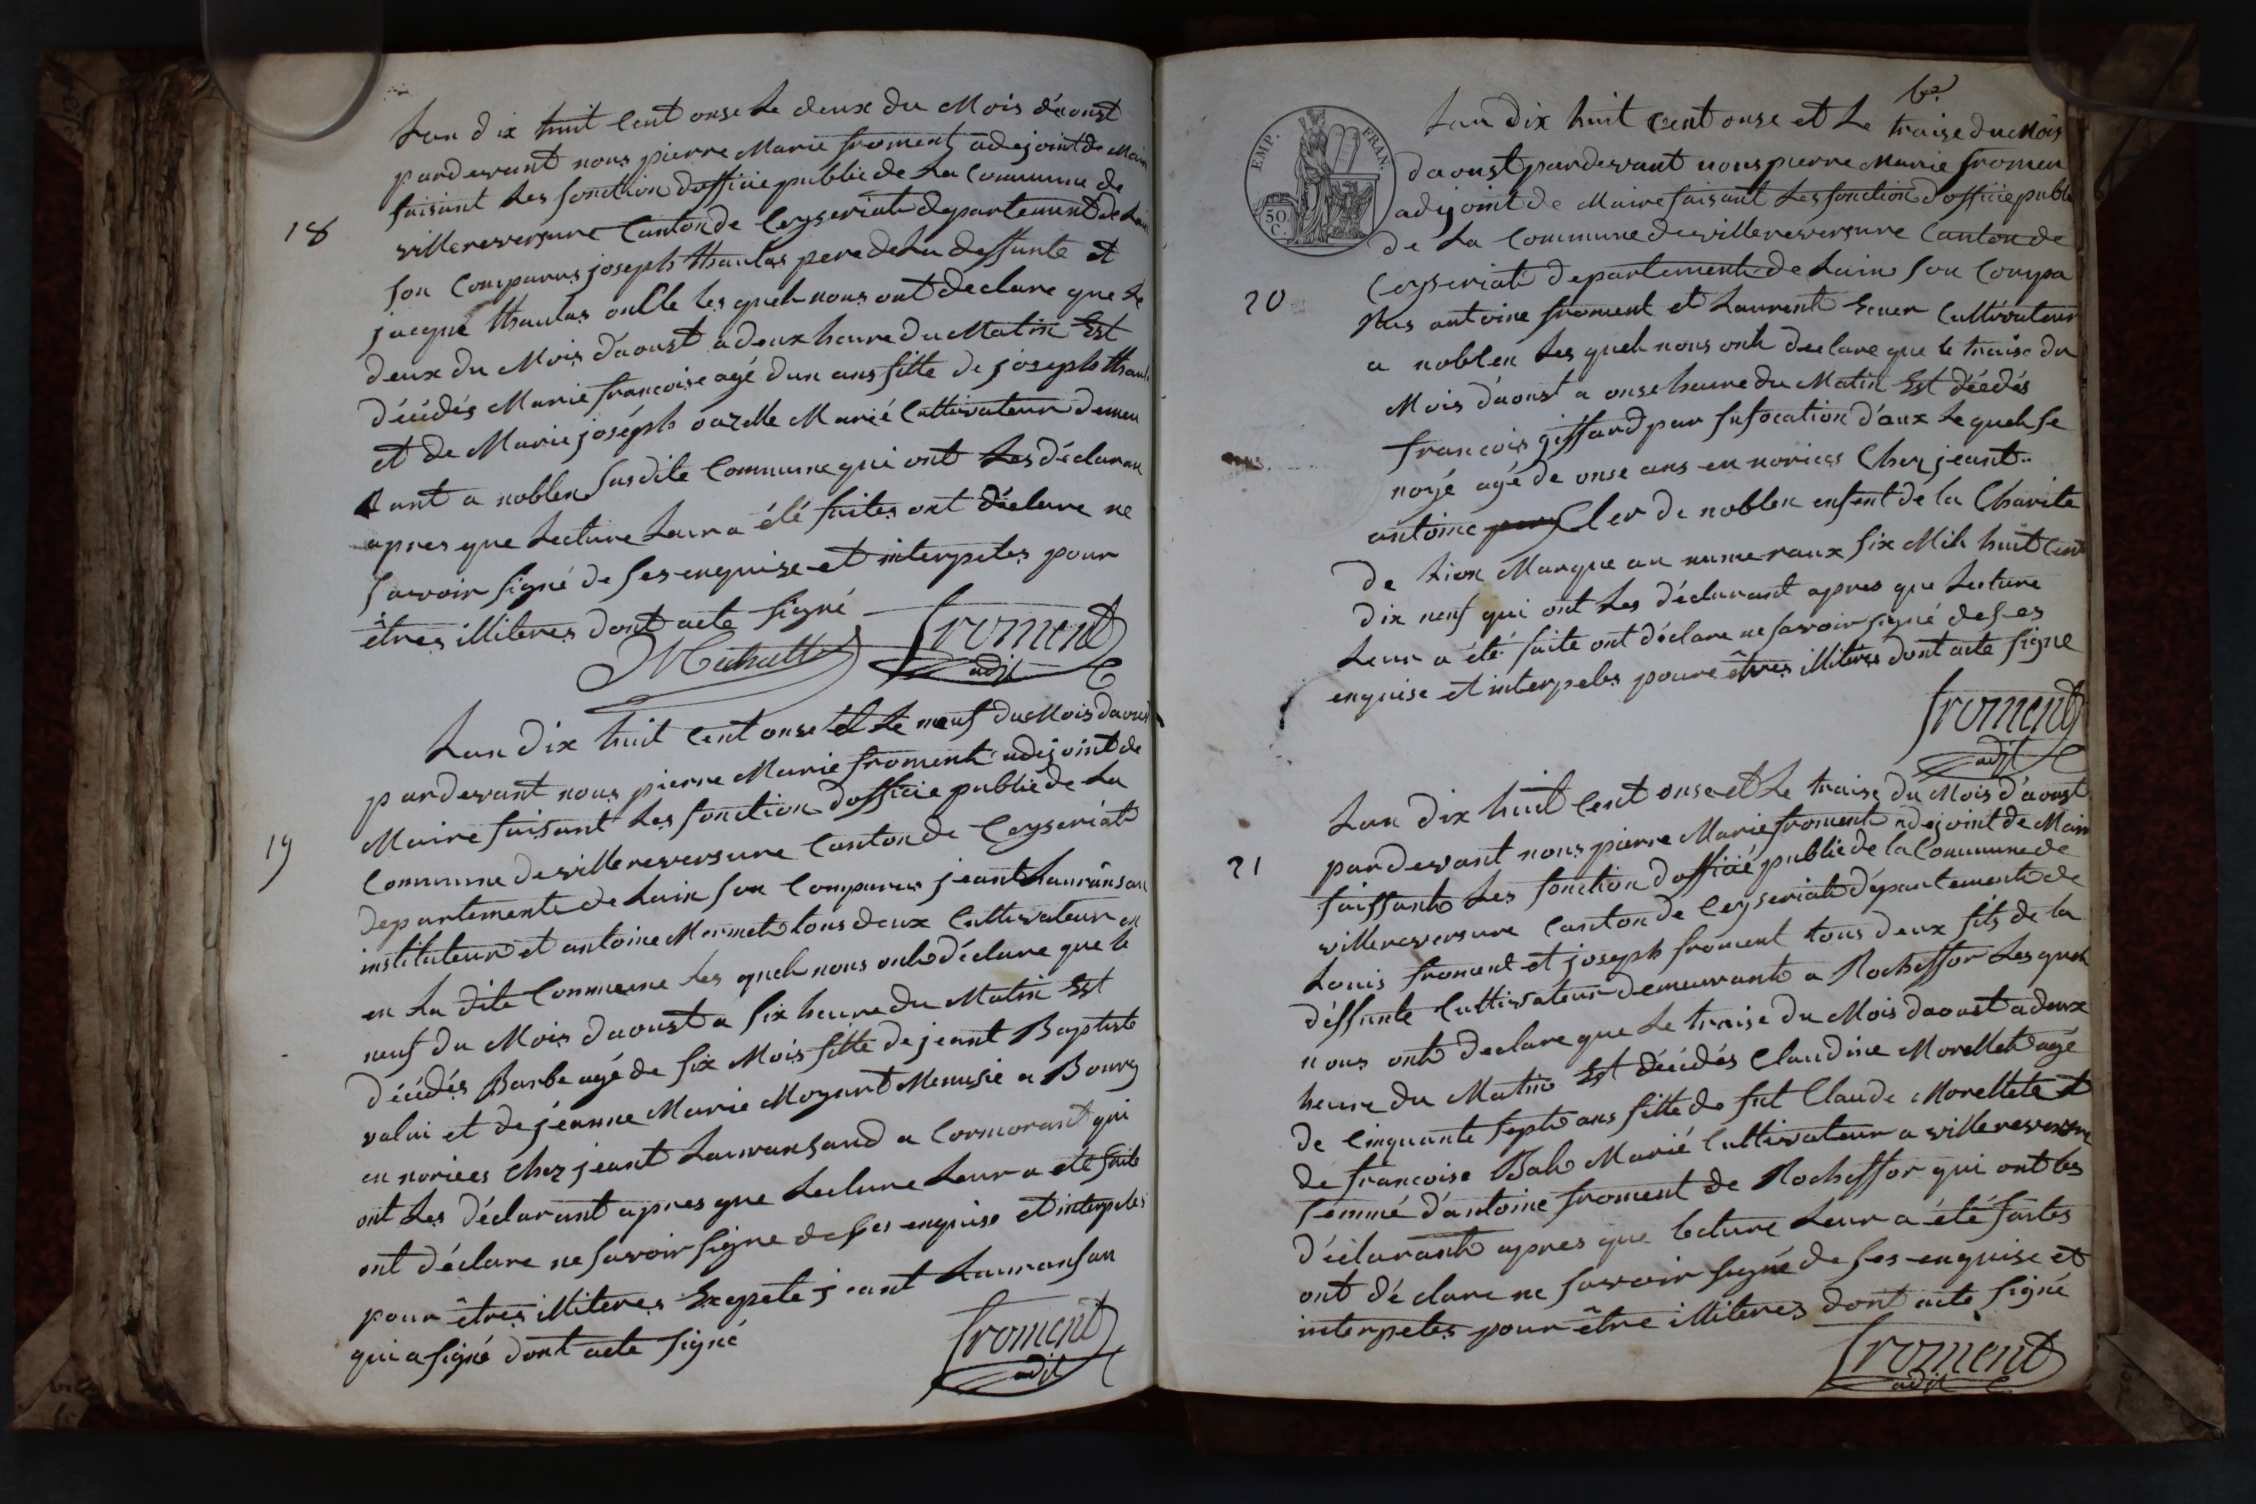 Lan dix huit Cent onse Le deux du Mois d'aoust
pardevant nous pierre Marie froment adejoint de Maire
faisant Les fonction d'officie publie de La Commune de
18
villereversure Canton de Ceyseriat departement de Lain
son Comparus joseph thaulas pere de La deffunte et
jacque thaulas oncle Les quels nous ont declare que Le
deux du Mois d'aoust a deux heure du Matin Est
décédés Marie francoise agé dun ans fille de joseph
et de Marie joséph Marié Cultivateur demeu
rant a noblen Susdite Commune qui ont Les déclarant
apres que Lecture Leur a été faites ont déclare ne
savoir signé de ses enquise et interpeles pour
êtres illiteres dont acte signé
froment
adjt
Lan dix huit Cent onse et Le neuf du Mois daoust
pardevant nous pierre Marie froment adejoint de
Maire faisant Les fonction d'officie publie de La
19
Commune de villereversure Canton de Ceyseriat
departement de Lain son Comparus jeant Lauransan
instituteur et antoine Mermet tous deux Cultivateur
en La dite Commune Les quels nous ont déclare que le
neuf du Mois daoust a six heure du Matin Est
décédés Barbe agé de six Mois fille de jeant Baptiste
valui et de jéanne Marie Moyart Menusie a Bourg
en norices Chez jeant Lauransand a Cormorant qui
ont Les déclarant apres que Lecture Leur a été faite
ont déclare ne savoir signe de ses enquise et interpeles
pour êtres illiteres Exepete jeant Lauransan
qui a signé dont acte signé
froment
adjt
EMP. FRAN.
50 C.
Lan dix huit Cent onse et Le traise du Mois
daoust pardevant nous pierre Marie fromen
adejoint de Maire faisant Les fonction d'officie public
de La Commune de villereversure Canton de
Ceyseriat departement de Lain son Compa
20
Rus antoine froment et Laurent Cultivateur
a noblen Les quels nous ont declare que le traise du
Mois d'aoust a onse heure du Matin Est décédés
francois giffard par sufocation d'aux Le quel se
noyé agé de onse ans en norices Chez jeant
antoine Cler de noblen enfent de la Charite
de Lion Marque au numeraux six Mil huit Cent
dix neuf qui ont Les déclarant apres que Lecture
Leur a été faite ont déclare ne savoir signé de ses
enquise et interpeles pour êtres illiteres dont acte signe
froment
adjt
Lan dix huit Cent onse et Le traise du Mois d'aoust
21
pardevant nous pierre Marie froment adejoint de Maire
faissant Les fonction d'officié publie de la Commune de
villereversure Canton de Ceyseriat département de
Louis froment et joseph froment tous deux fils de la
déffunte Cultivateur demeurant a Rocheffor Les quels
nous ont declare que Le traise du Mois daoust a deux
heure du Matin Est décédés Claudine Morellet agé
de Cinquante sept ans fille de fut Claude Morellete et
de francoise Bal Marié Cultivateur a villereversure
femme d'antoine froment de Rocheffor qui ont les
déclarant apres que lecture Leur a été faites
ont déclare ne savoir signé de ses enquise et
interpeles pour être illiteres dont acte signé
froment
adjt